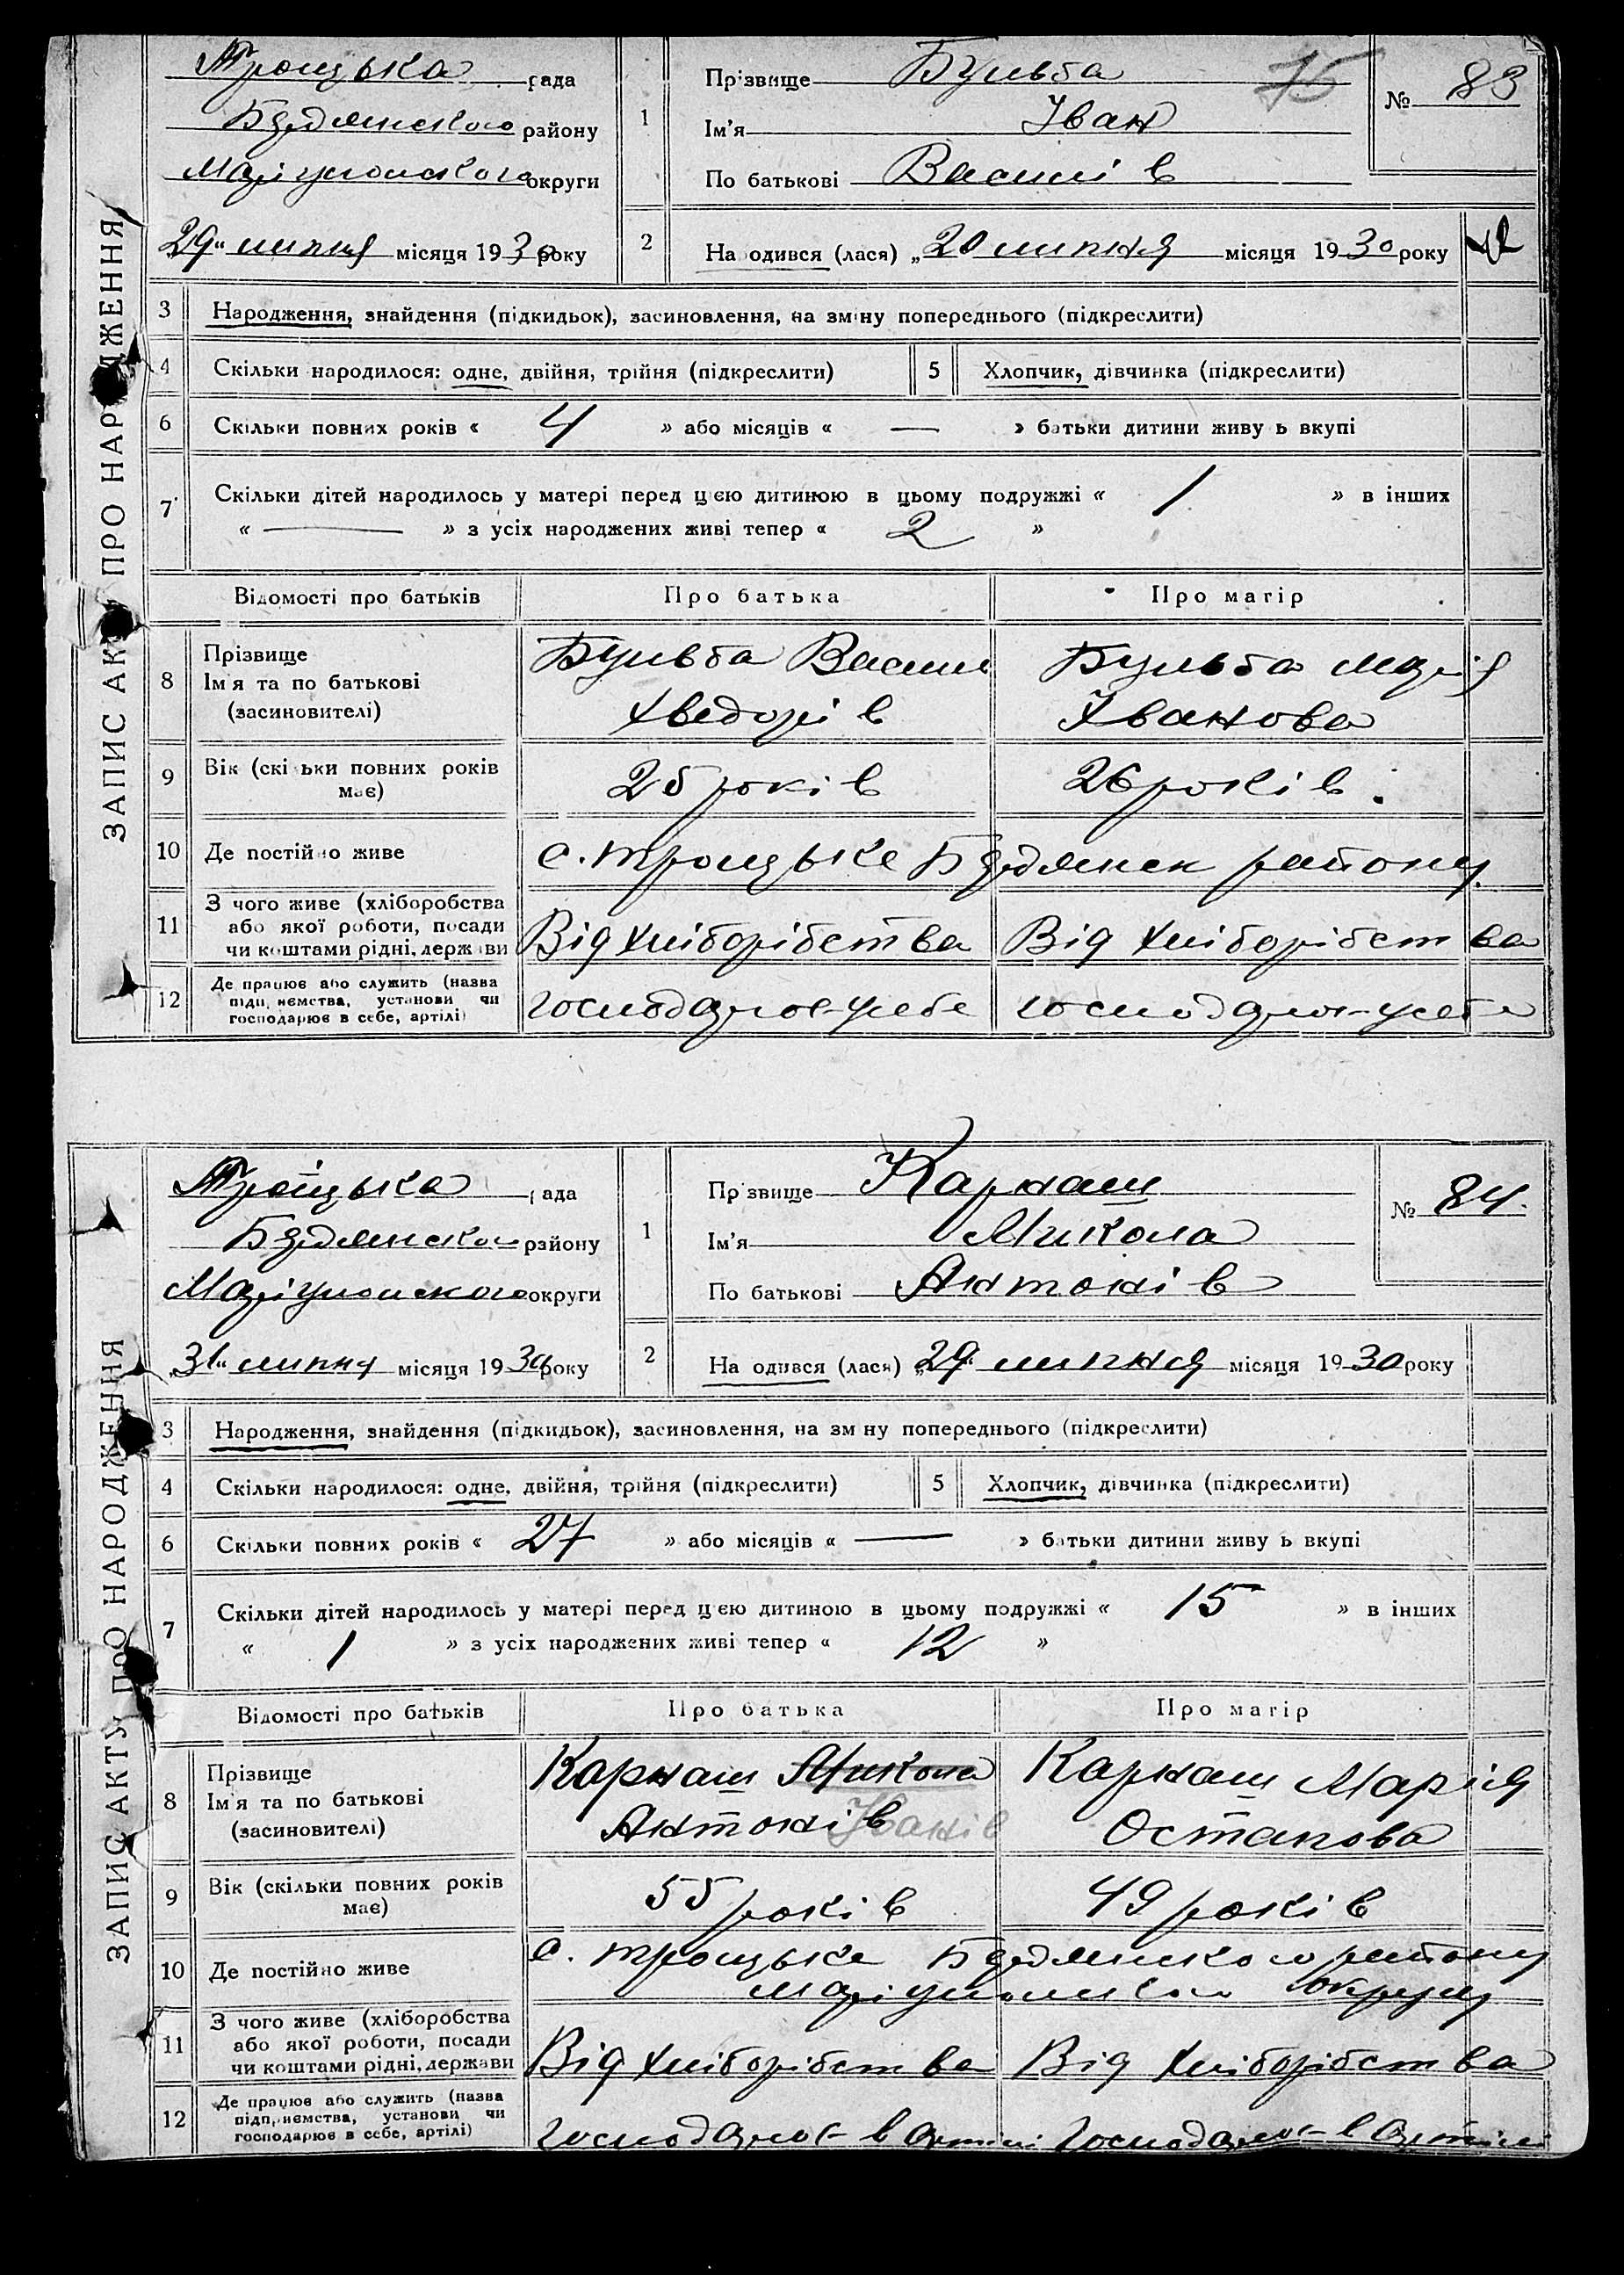 ЗАПИС АКТУ ПРО НАРОДЖЕННЯ
Троіцька рада
Бердянського району
Маріупольського округи
„29“ липня місяця 1930 року
1
Прізвище Бульба
Ім'я Іван
По батькові Василів
75
№ 83
2
Народився (лася) „20 липня місяця 1930 року
3 Народження, знайдення (підкидьок), засиновлення, на зміну попереднього (підкреслити)
4 Скільки народилося: одне, двійня, трійня (підкреслити) 5 Хлопчик, дівчинка (підкреслити)
6 Скільки повних років « 4 » або місяців « — » батьки дитини живуть вкупі
7 Скільки дітей народилось у матері перед цією дитиною в цьому подружжі « 1 » в інших
« — » з усіх народжених живі тепер « 2 »
Відомості про батьків Про батька Про матір
8 Прізвище Ім'я та по батькові (засиновителі)
Бульба Васил Хведорів
Бульба Марія Іванова
9 Вік (скільки повних років має) 25 років 26 років
10 Де постійно живе с. Троіцьке Бердянськ району
11 З чого живе (хліборобства або якої роботи, посади чи коштами рідні, держави
Від хліборібства Від хліборібства
12 Де працює або служить (назва підприємства, установи чи господарює в себе, артілі)
господарює у себе господарює у себе
ЗАПИС АКТУ ПРО НАРОДЖЕННЯ
Троїцька рада
Бердянського району
Маріупольського округи
„31“ липня місяця 1930 року
1
Прізвище Карнаш
Ім'я Микола
По батькові Антонів
№ 84.
2
Народився (лася) „29“ липня місяця 1930 року
3 Народження, знайдення (підкидьок), засиновлення, на зміну попереднього (підкреслити)
4 Скільки народилося: одне, двійня, трійня (підкреслити) 5 Хлопчик, дівчинка (підкреслити)
6 Скільки повних років « 27 » або місяців « — » батьки дитини живуть вкупі
7 Скільки дітей народилось у матері перед цією дитиною в цьому подружжі « 15 » в інших
« 1 » з усіх народжених живі тепер « 12 »
Відомості про батьків Про батька Про матір
8 Прізвище Ім'я та по батькові (засиновителі)
Карнаш Микола Антонів Іванів
Карнаш Марія Остапова
9 Вік (скільки повних років має) 55 років 49 років
10 Де постійно живе с. Троіцьке Бердянського району
Маріупольського округу
11 З чого живе (хліборобства або якої роботи, посади чи коштами рідні, держави
Від хліборібства Від хліборібства
12 Де працює або служить (назва підприємства, установи чи господарює в себе, артілі)
господарює в артілі господарює в артілі